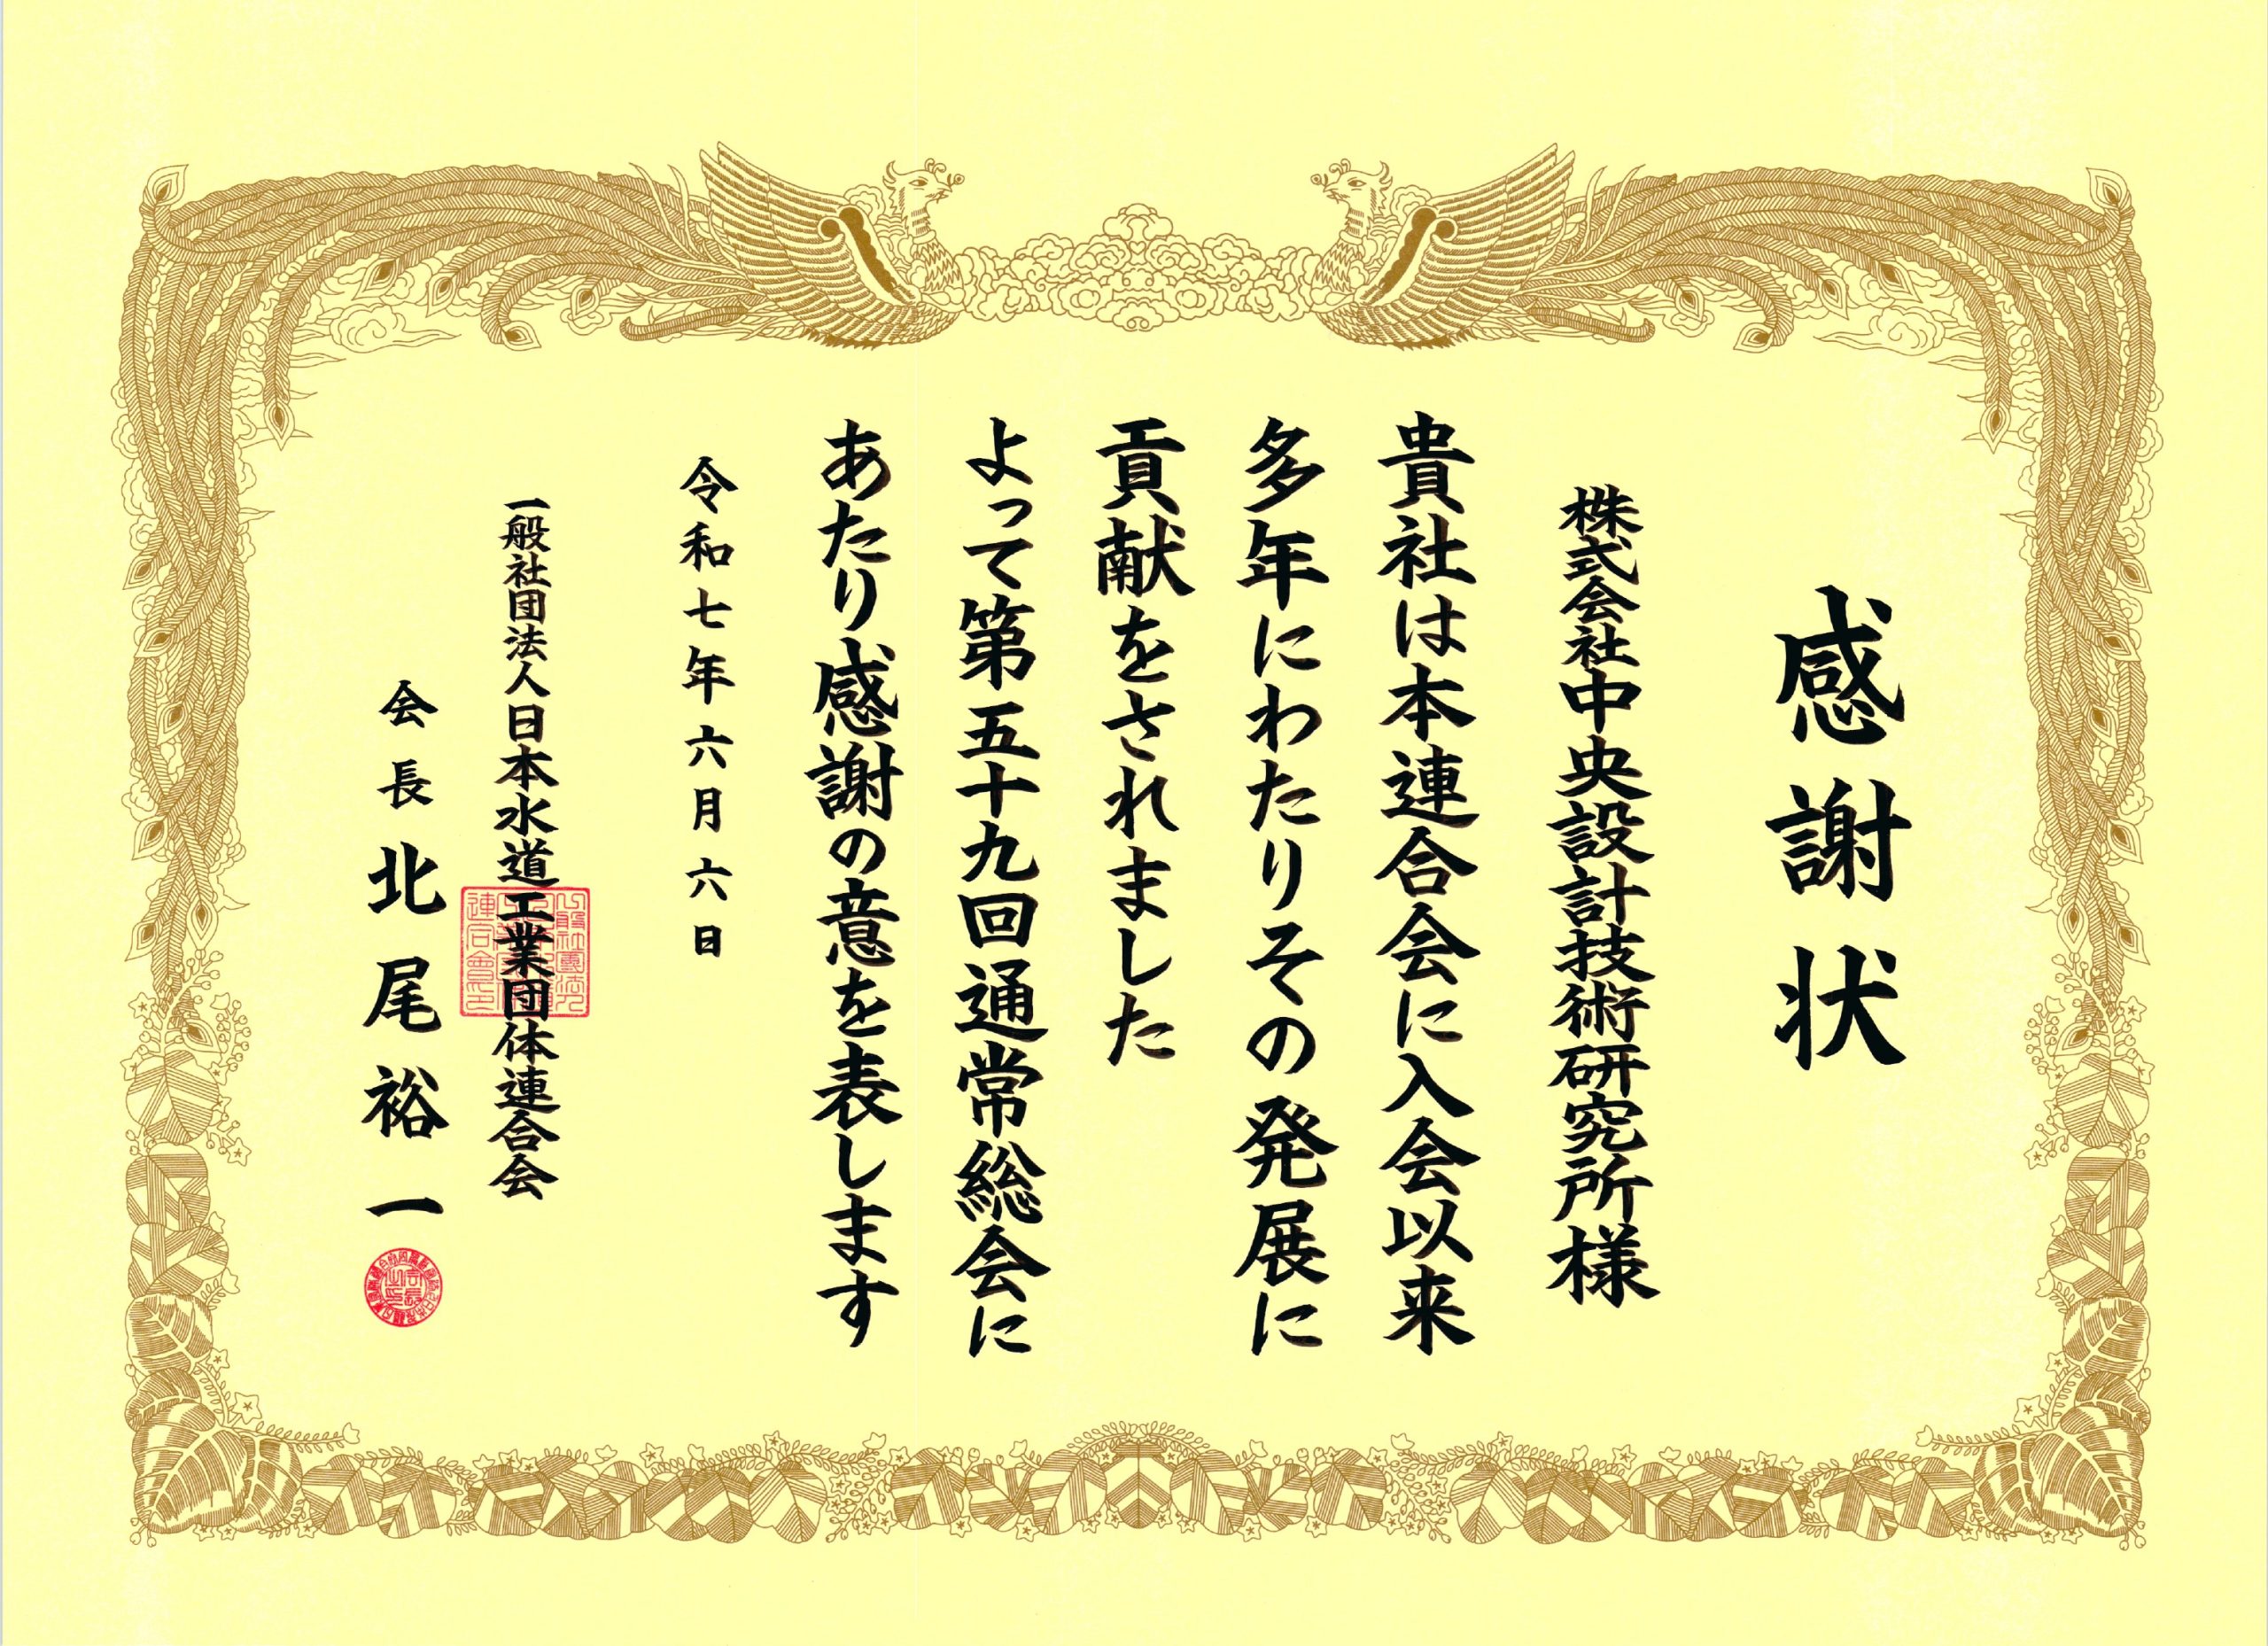 感謝状
株式会社中央設計技術研究所様
貴社は本連合会に入会以来
多年にわたりその発展に
貢献をされました
よって第五十九回通常総会に
あたり感謝の意を表します
令和七年六月六日
一般社団法人日本水道工業団体連合会
会長北尾裕一